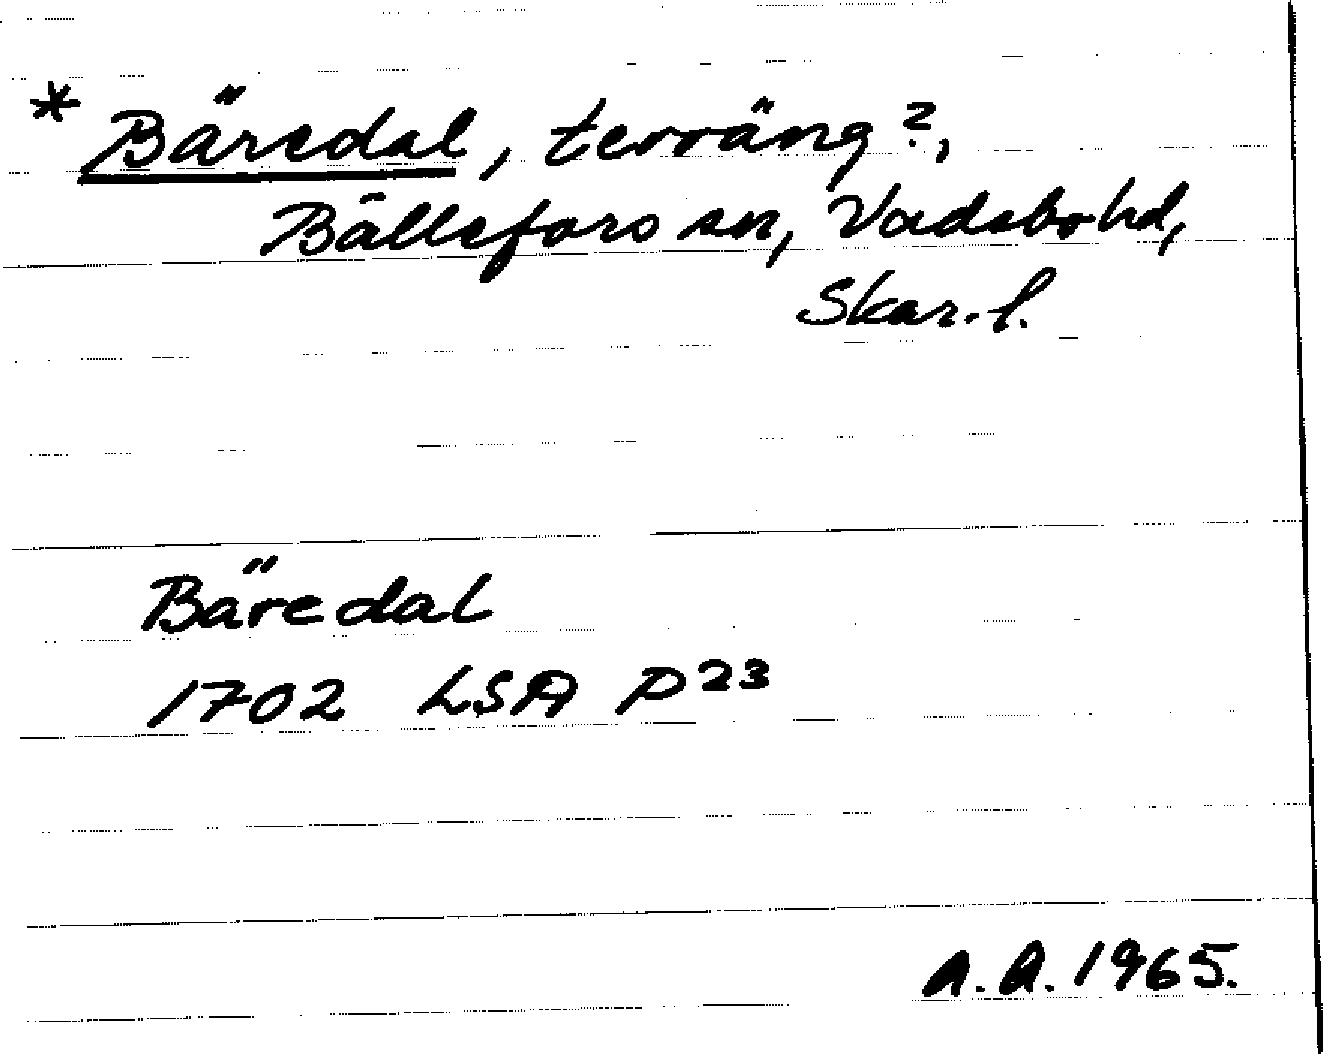 * Bäredal, terräng?,
Bällefors sn, Vadsbo hd,
Skar. l.
Bäredal
1702 LSA P23
A.A. 1965.